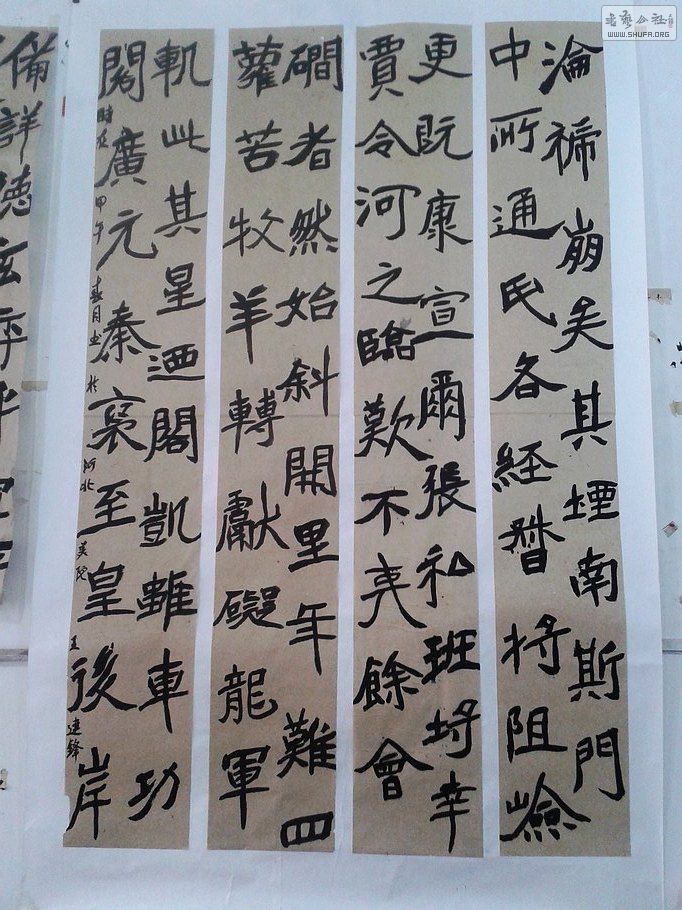 淪褅崩矣其堙南斯門
中所通氏各経晉将阻嶮
更既康宣爾張私班埒幸
賈令河之臨歎不夷餘會
礀者然始斜開里年難四
蘿苦牧羊轉獻礙龍軍
軌此其星迺閣凱雖車功
閣廣元秦褒至皇後岸
時在甲午春月書於河北美院王建鋒
備詳徳玄
書藝公社
WWW.SHUFA.ORG